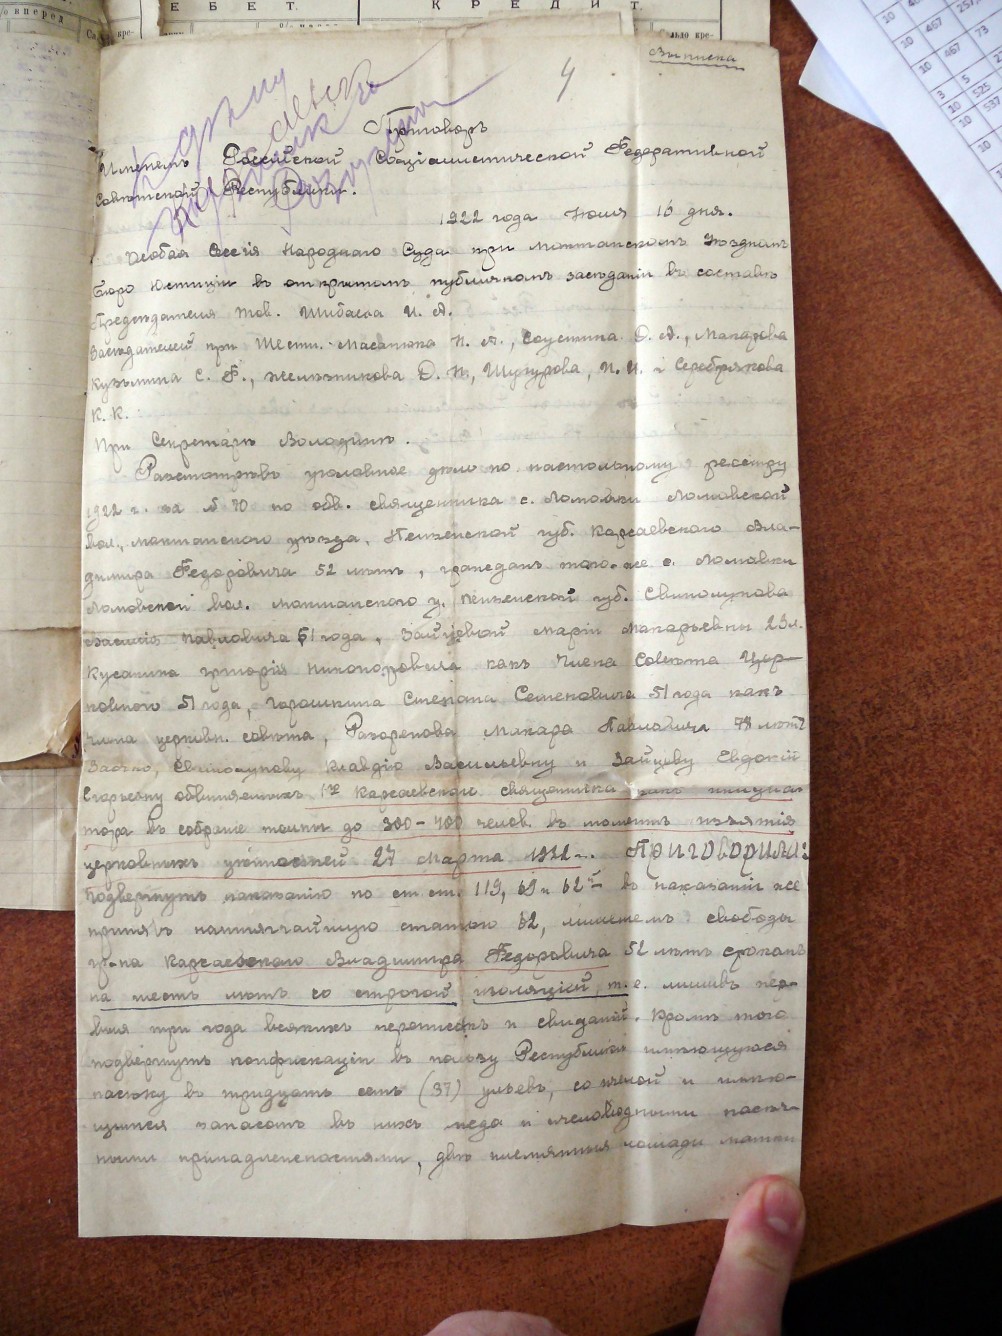 ЕБЕТ.
КРЕДИТ.
Выписка
4
Приговоръ
Именемъ Россійской Соціалистической Федеративной
Совѣтской Республики.
1922 года Июля 16 дня.
Особая Сессія Народнаго Суда при Мокшанскомъ Уѣздномъ
Бюро Юстиціи въ открытомъ публичномъ засѣданіи въ составѣ
Предсѣдателя тов. Шибаева И. А.
Засѣдателей при Шести. Масанюка Н. А., Соустина Д. А., Макарова
Кузьмина С. Ф., Желѣзникова Д. Ж, Шукурова, И. И. і Серебрякова
К. К.
При Секретарѣ Володинѣ.
Разсмотрѣвъ уголовное дѣло по настольному реестру
1922 г. за № 70 по обв. священника с. Ломовки Ломовской
вол., Мокшанского уѣзда, Пензенской губ. Карсаевского Вла-
димира Федоровича 52 лѣтъ, гражданъ того-же с. Ломовки
Ломовской вол. Мокшанского у. Пензенской губ. Свинолупова
Василія Павловича 61 года, Зайцевой Маріи Макарьевны 23 л.
Кусакина Григорія Никоноровича какъ Члена Совѣта Цер-
ковного 51 года, Горошкина Степана Семеновича 51 года какъ
Члена церковн. совѣта, Разоренова Макара Павловича 78 лѣтъ
Заочно, Свинолупову Клавдію Васильевну и Зайцеву Евдокій
Егорьевну обвиняемыхъ 1е Карсаевскаго священника какъ иниціа-
тора въ собраніе толпы до 300-400 челов. въ моментъ изъятія
церковныхъ цѣнностей 27 Марта 1922 г. Приговорили:
Подвергнуть наказанію по ст. ст. 119, 69 и 62й въ наказаніи же
принявъ наитягчайшую статью 62, лишеніемъ свободы
гр-на Карсаевского Владимира Федоровича 52 лѣтъ срокомъ
на шесть лѣтъ со строгой изоляціей, т. е. лишивъ пер-
выя три года всякихъ переписокъ и свиданій. Кромѣ того
подвергнуть конфискаціи въ пользу Республики имѣющуюся
пасѣку въ тридцать семь (37) ульевъ, со пчелой и имѣю-
щимся запасомъ въ нихъ меда и пчеловодными пасѣч-
ными принадлежностями, двѣ племянныя лошади матки